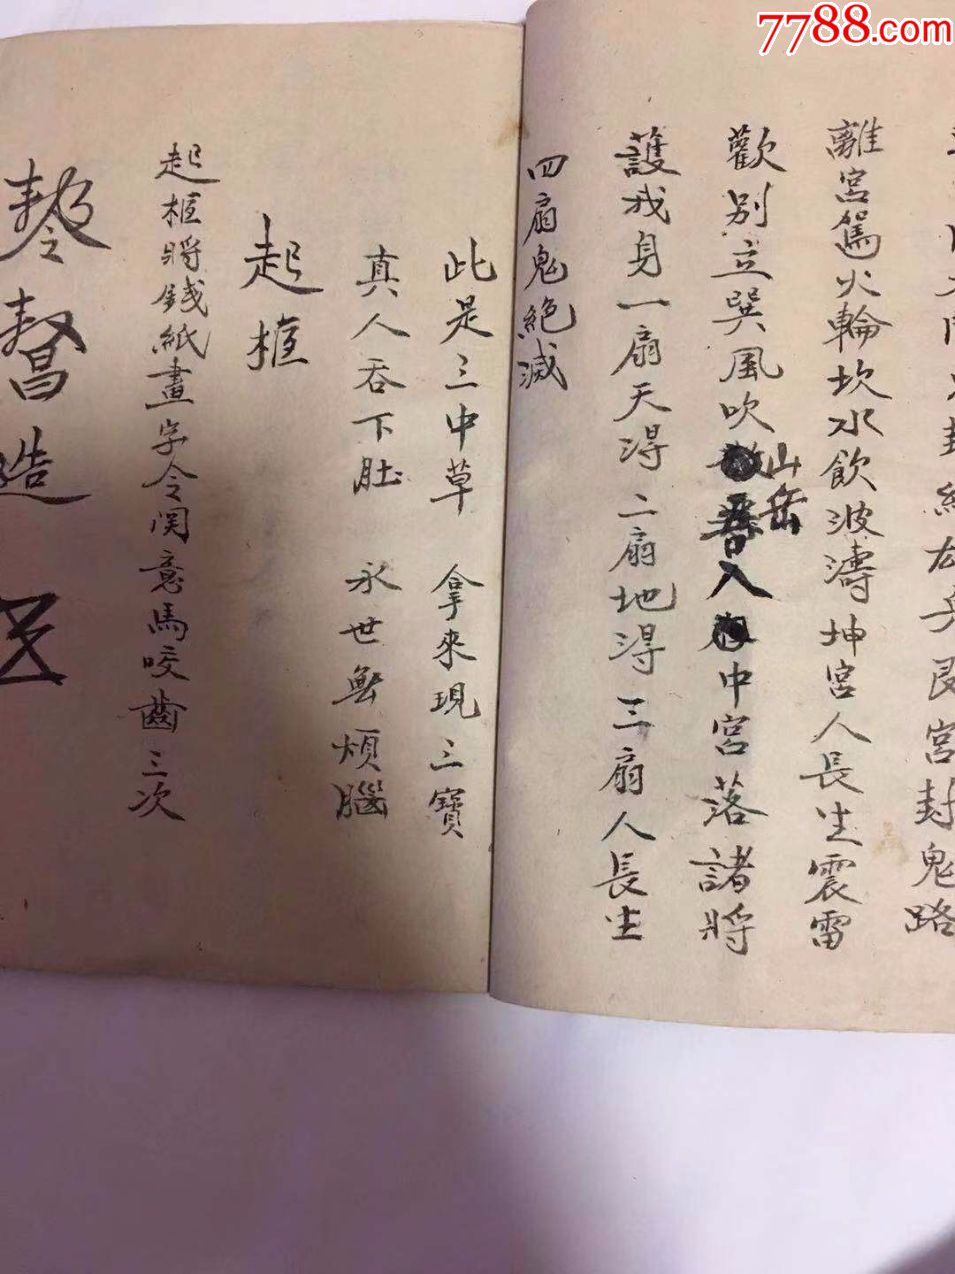 7788.com
宮封鬼路
離宮駕火輪坎水飲波濤坤宮人長生震雷
歡別立巽風吹山岳吾入中宮落諸將
護我身一扇天淂二扇地淂三扇人長生
四扇鬼絕滅
此是三中草 拿來現三寶
真人吞下肚 永世無煩腦
起框
起框將錢紙畫字令関意馬咬齒三次